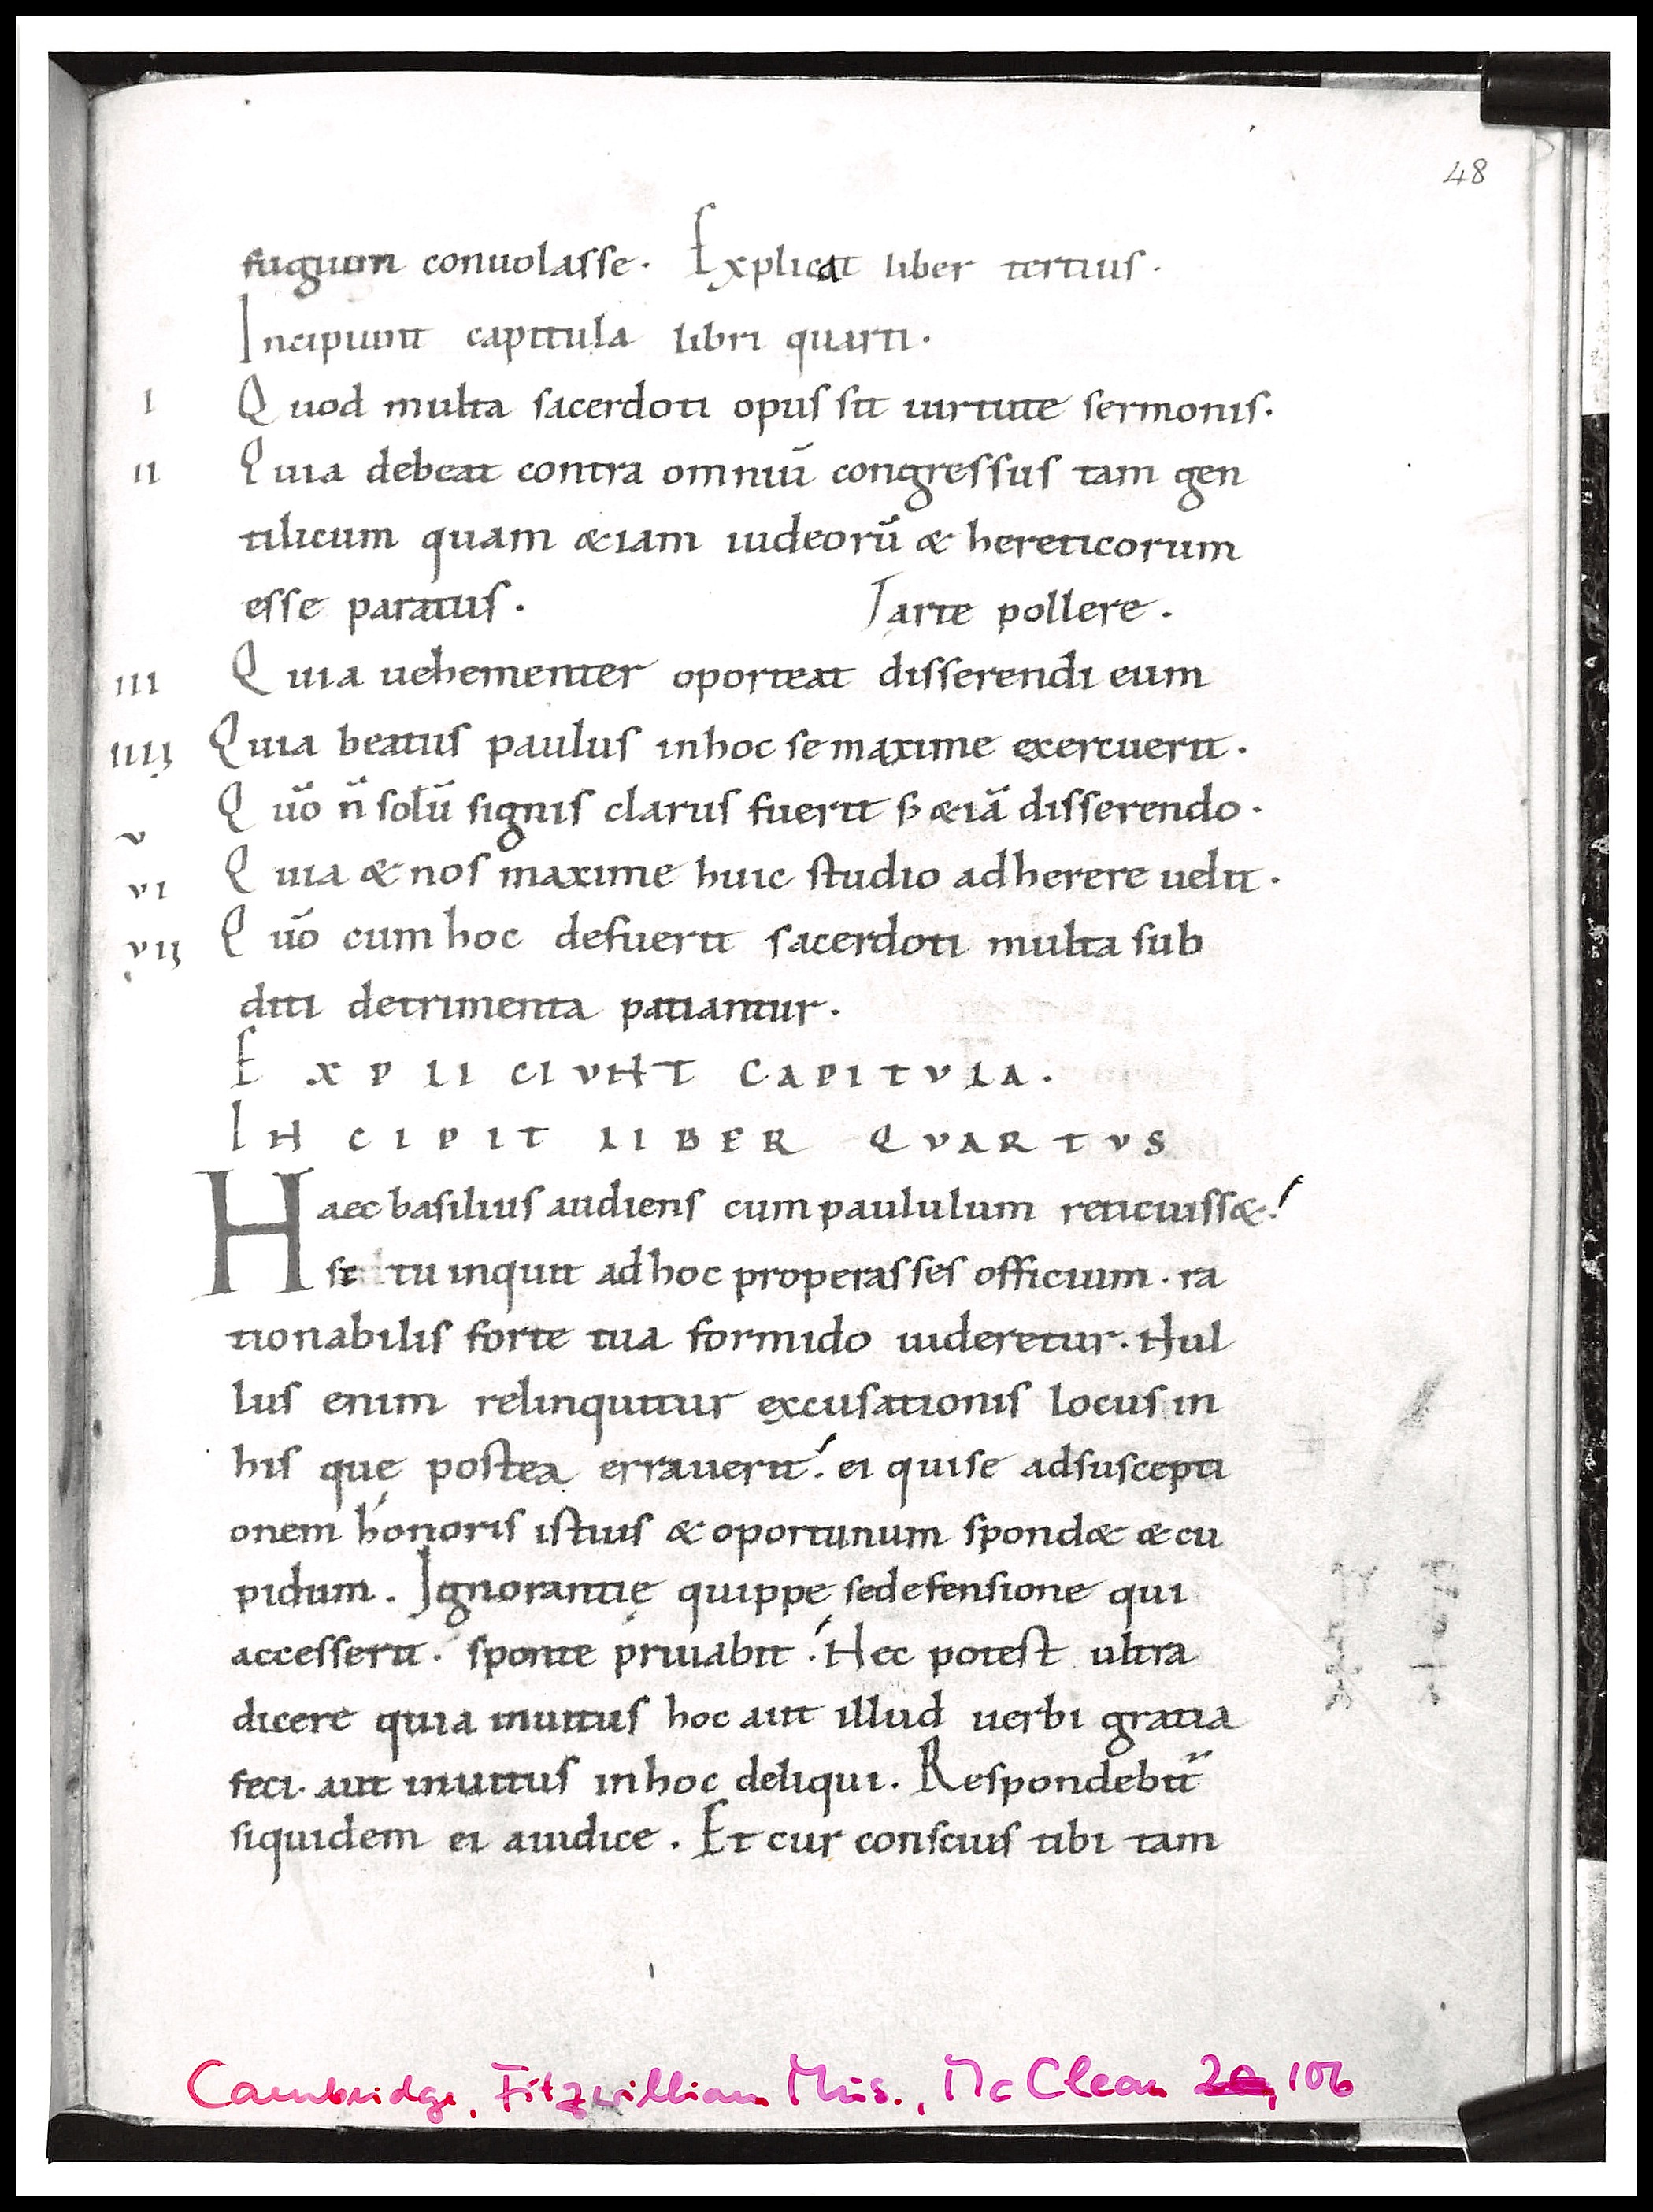 48
fugium conuolasse. Explicat liber tertius.
Incipiunt capitula libri quarti.
I Quod multa sacerdoti opus sit uirtute sermonis.
II Quia debeat contra omniū congressus tam gen
tilicum quam &iam iudeorū & hereticorum
esse paratus. arte pollere.
III Quia uehementer oporteat disserendi eum
IIII Quia beatus paulus inhoc se maxime exercuerit.
V Quō n̄ solū signis clarus fuerit s; &iā disserendo.
VI Quia & nos maxime huic studio adherere uelit.
VII Quō cum hoc defuerit sacerdoti multa sub
diti detrimenta patiantur.
EXPLICIUNT CAPITULA.
INCIPIT LIBER QUARTUS
Haec basilius audiens cum paululum reticuiss&.
si tu inquit ad hoc properasses officium. ra
tionabilis forte tua formido uideretur. Nul
lus enim relinquitur excusationis locus in
his quę postea errauerit. ei qui se adsuscepti
onem honoris istius & oportunum spond& & cu
pidum. Ignorantię quippe se defensione qui
accesserit. sponte priuabit. Nec potest ultra
dicere quia inuitus hoc aut illud uerbi gratia
feci. aut inuitus inhoc deliqui. Respondebit
siquidem ei a iudice. Et cur conscius tibi tam
Cambridge, Fitzwilliam Mus., McClean 106